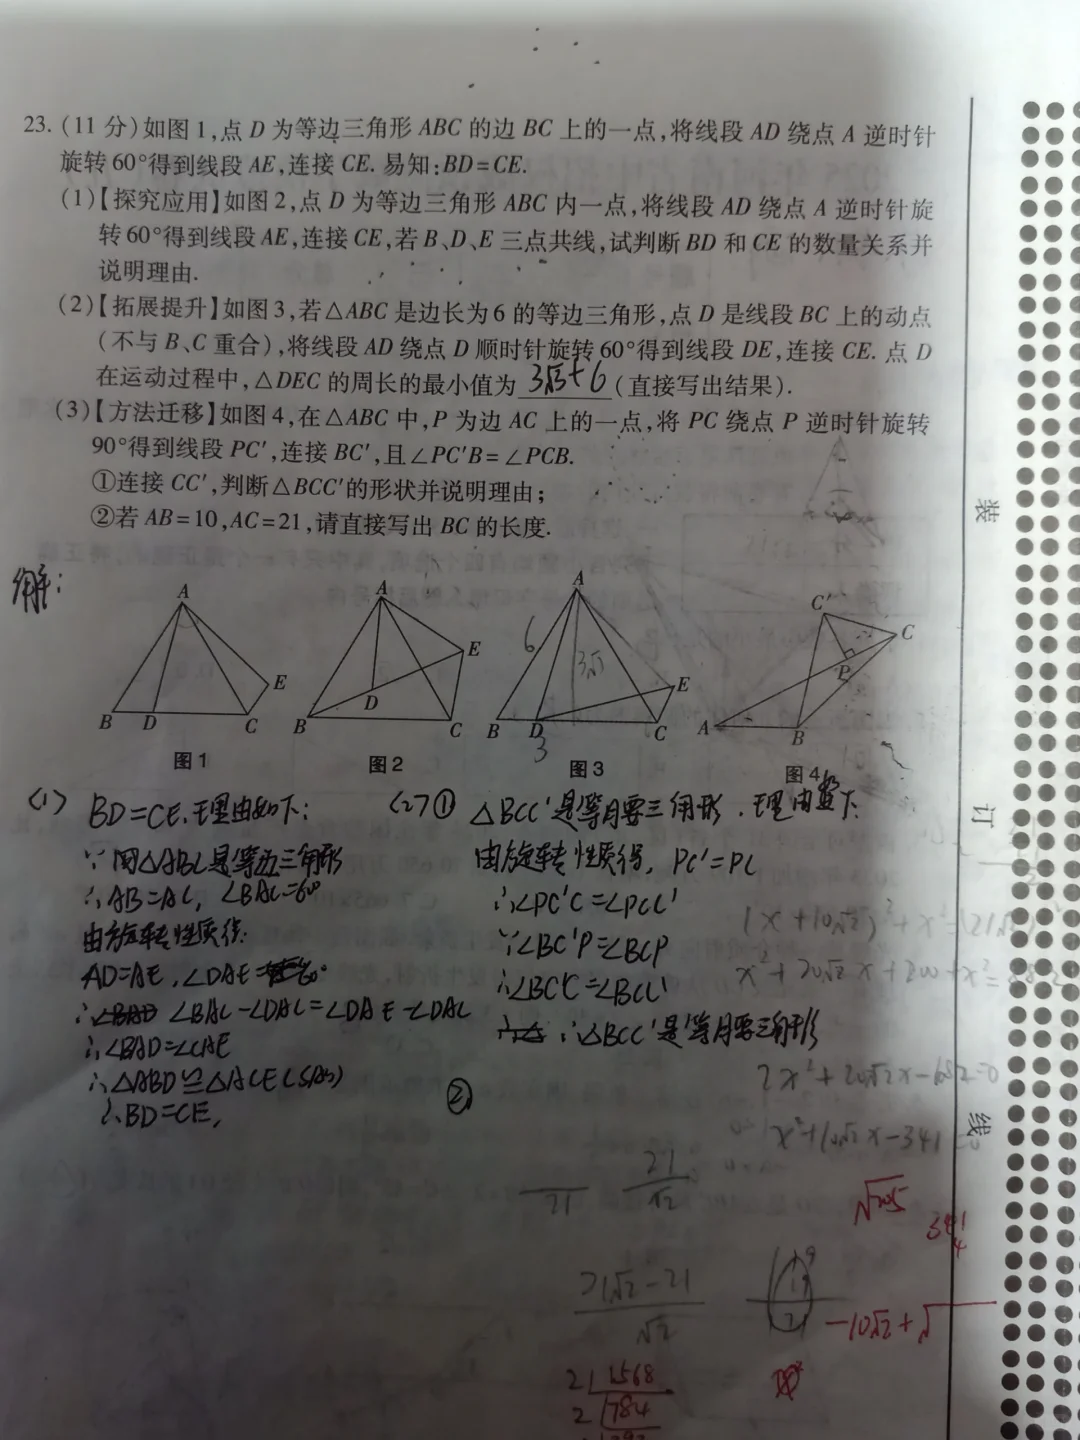 23. (11 分)如图 1,点 D 为等边三角形 ABC 的边 BC 上的一点,将线段 AD 绕点 A 逆时针
旋转 60°得到线段 AE,连接 CE. 易知:BD=CE.
(1)【探究应用】如图 2,点 D 为等边三角形 ABC 内一点,将线段 AD 绕点 A 逆时针旋
转 60°得到线段 AE,连接 CE,若 B、D、E 三点共线,试判断 BD 和 CE 的数量关系并
说明理由.
(2)【拓展提升】如图 3,若△ABC 是边长为 6 的等边三角形,点 D 是线段 BC 上的动点
(不与 B、C 重合),将线段 AD 绕点 D 顺时针旋转 60°得到线段 DE,连接 CE. 点 D
在运动过程中,△DEC 的周长的最小值为 3√3+6 (直接写出结果).
(3)【方法迁移】如图 4,在△ABC 中,P 为边 AC 上的一点,将 PC 绕点 P 逆时针旋转
90°得到线段 PC′,连接 BC′,且∠PC′B=∠PCB.
①连接 CC′,判断△BCC′的形状并说明理由;
②若 AB=10,AC=21,请直接写出 BC 的长度.
装
解:
A
B D C E
图 1
A
B D C E
图 2
A
6 3√3
B D C E
3
图 3
C′ C
P
A B
图 4
订
(1) BD=CE,理由如下:
∵ △ABC是等边三角形
∴AB=AC, ∠BAC=60°
由旋转性质得:
AD=AE,∠DAE=60°
∴∠BAC-∠DAC=∠DAE-∠DAC
∴∠BAD=∠CAE
∴△ABD≌△ACE(SAS)
∴BD=CE,
(2)① △BCC′是等腰三角形,理由如下
由旋转性质得, PC′=PC
∴∠PC′C=∠PCC′
∵∠BC′P=∠BCP
∴∠BC′C=∠BCC′
∴△BCC′是等腰三角形
②
x²+20√2x+200+x²=
2x²+20√2x-682=0
x²+10√2x-341=0
线
21
21
√2
21√2-21
√2
-10√2+√
2 1568
2 784